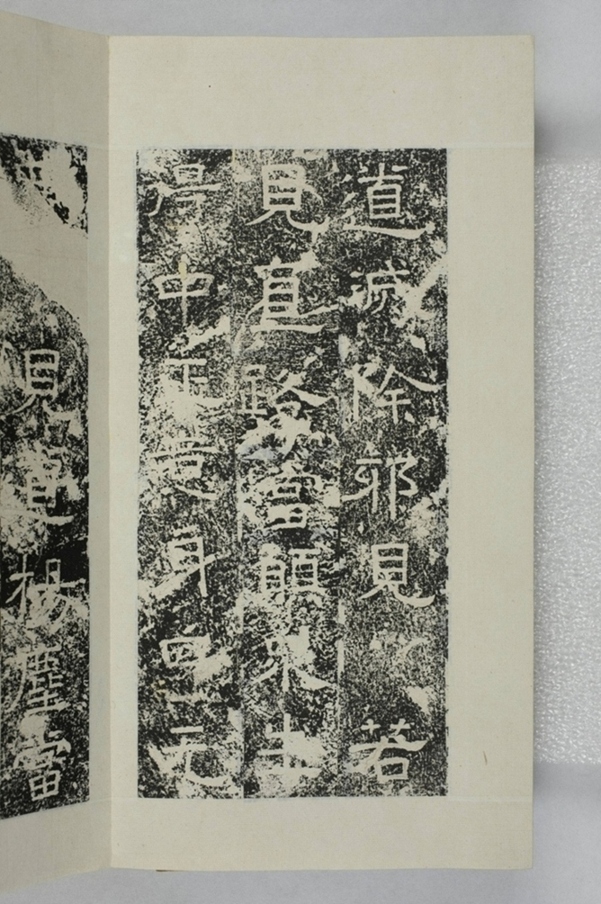 道滅除邪見若
見直路當願衆生
得中正意身口无
見道揚塵當